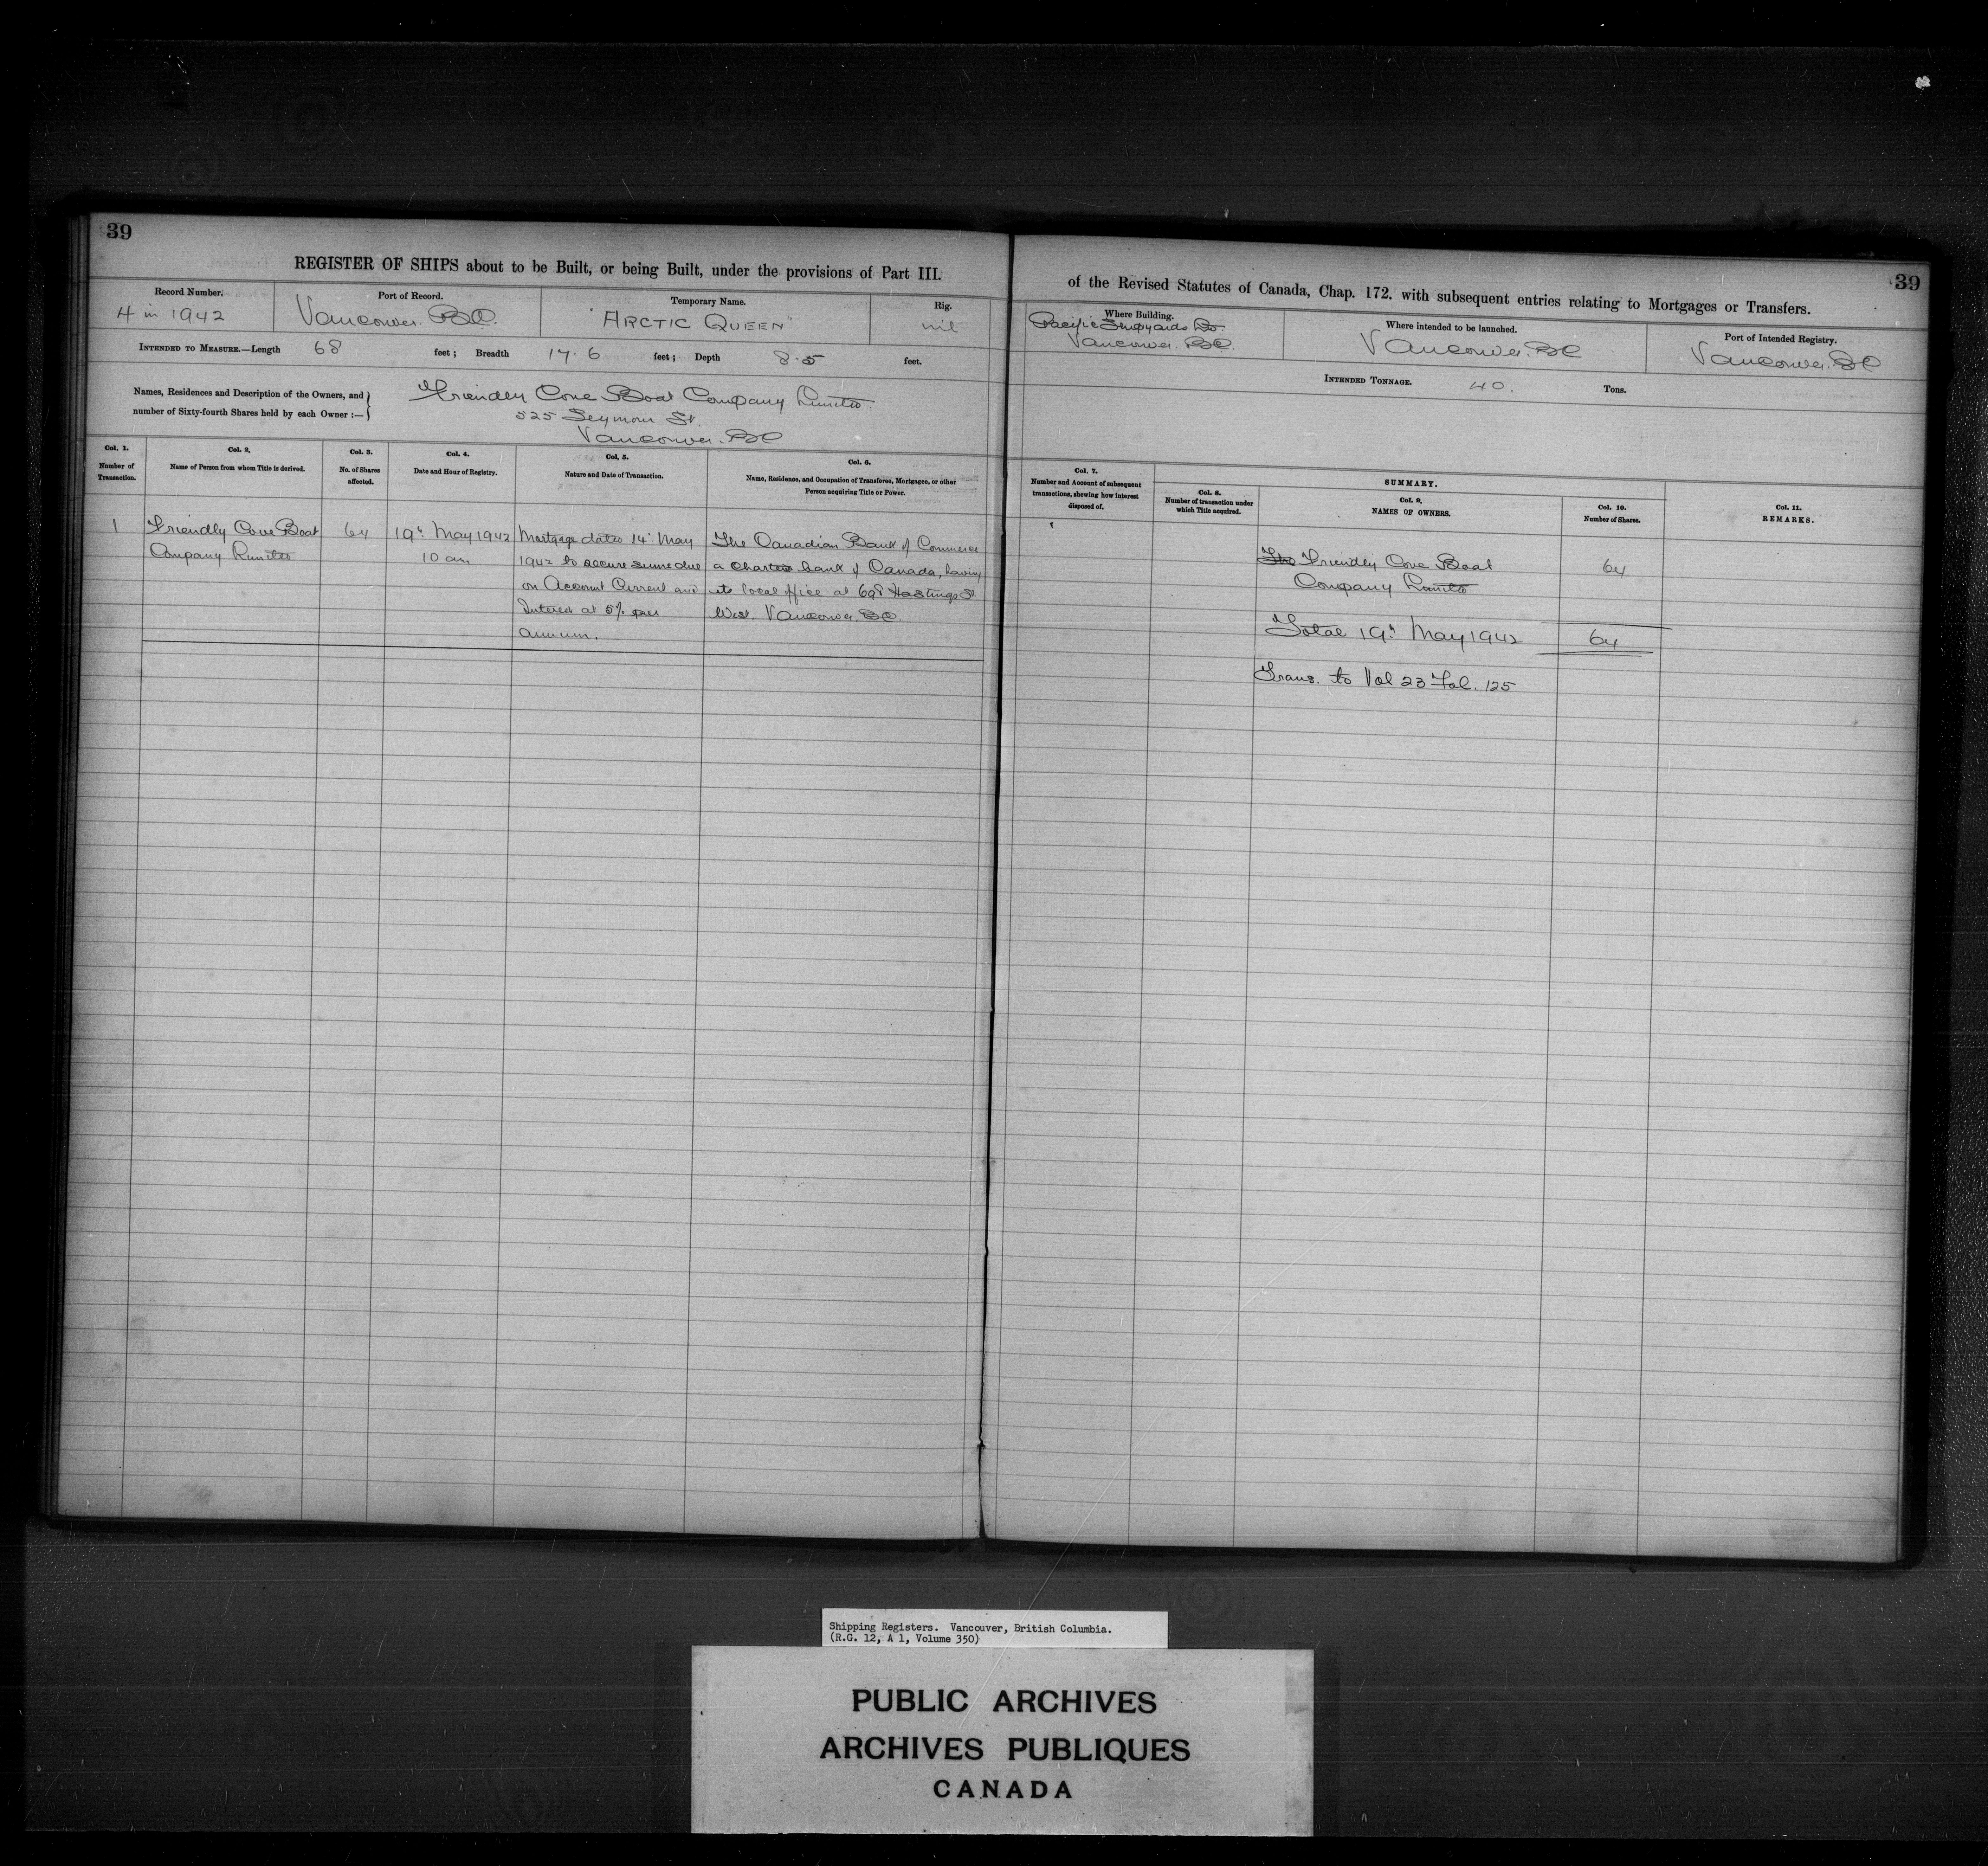 39
REGISTER OF SHIPS about to be Built, or being Built, under the provisions of Part III.
Record Number.
4 in 1942
Port of Record.
Vancouver. BC.
Temporary Name.
"ARCTIC QUEEN"
Rig.
nil
INTENDED TO MEASURE.—Length 68 feet; Breadth 17.6 feet; Depth 8.5 feet.
Names, Residences and Description of the Owners, and
number of Sixty-fourth Shares held by each Owner :—
Friendly Cove Boat Company Limited
525 Seymour St.
Vancouver. BC
Col. 1.
Number of
Transaction.
Col. 2.
Name of Person from whom Title is derived.
Col. 3.
No. of Shares
affected.
Col. 4.
Date and Hour of Registry.
Col. 5.
Nature and Date of Transaction.
Col. 6.
Name, Residence, and Occupation of Transferee, Mortgagee, or other
Person acquiring Title or Power.
1
Friendly Cove Boat
Company Limited
64
19th May 1942
10 am
Mortgage dated 14th May
1942 to secure sums due
on Account Current and
Interest at 5% per
annum.
The Canadian Bank of Commerce
a Chartered bank of Canada, having
its local office at 698 Hastings St
West. Vancouver. BC.
39
of the Revised Statutes of Canada, Chap. 172. with subsequent entries relating to Mortgages or Transfers.
Where Building.
Pacific Shipyards Ltd.
Vancouver. BC.
Where intended to be launched.
Vancouver. BC
Port of Intended Registry.
Vancouver. BC
INTENDED TONNAGE. 40. Tons.
Col. 7.
Number and Account of subsequent
transactions, shewing how interest
disposed of.
SUMMARY.
Col. 8.
Number of transaction under
which Title acquired.
Col. 9.
NAMES OF OWNERS.
Col. 10.
Number of Shares.
Col. 11.
REMARKS.
The Friendly Cove Boat
Company Limited
64
Total 19th May 1942 64
Trans. to Vol 23 Fol. 125
Shipping Registers. Vancouver, British Columbia.
(R.G. 12, A 1, Volume 350)
PUBLIC ARCHIVES
ARCHIVES PUBLIQUES
CANADA